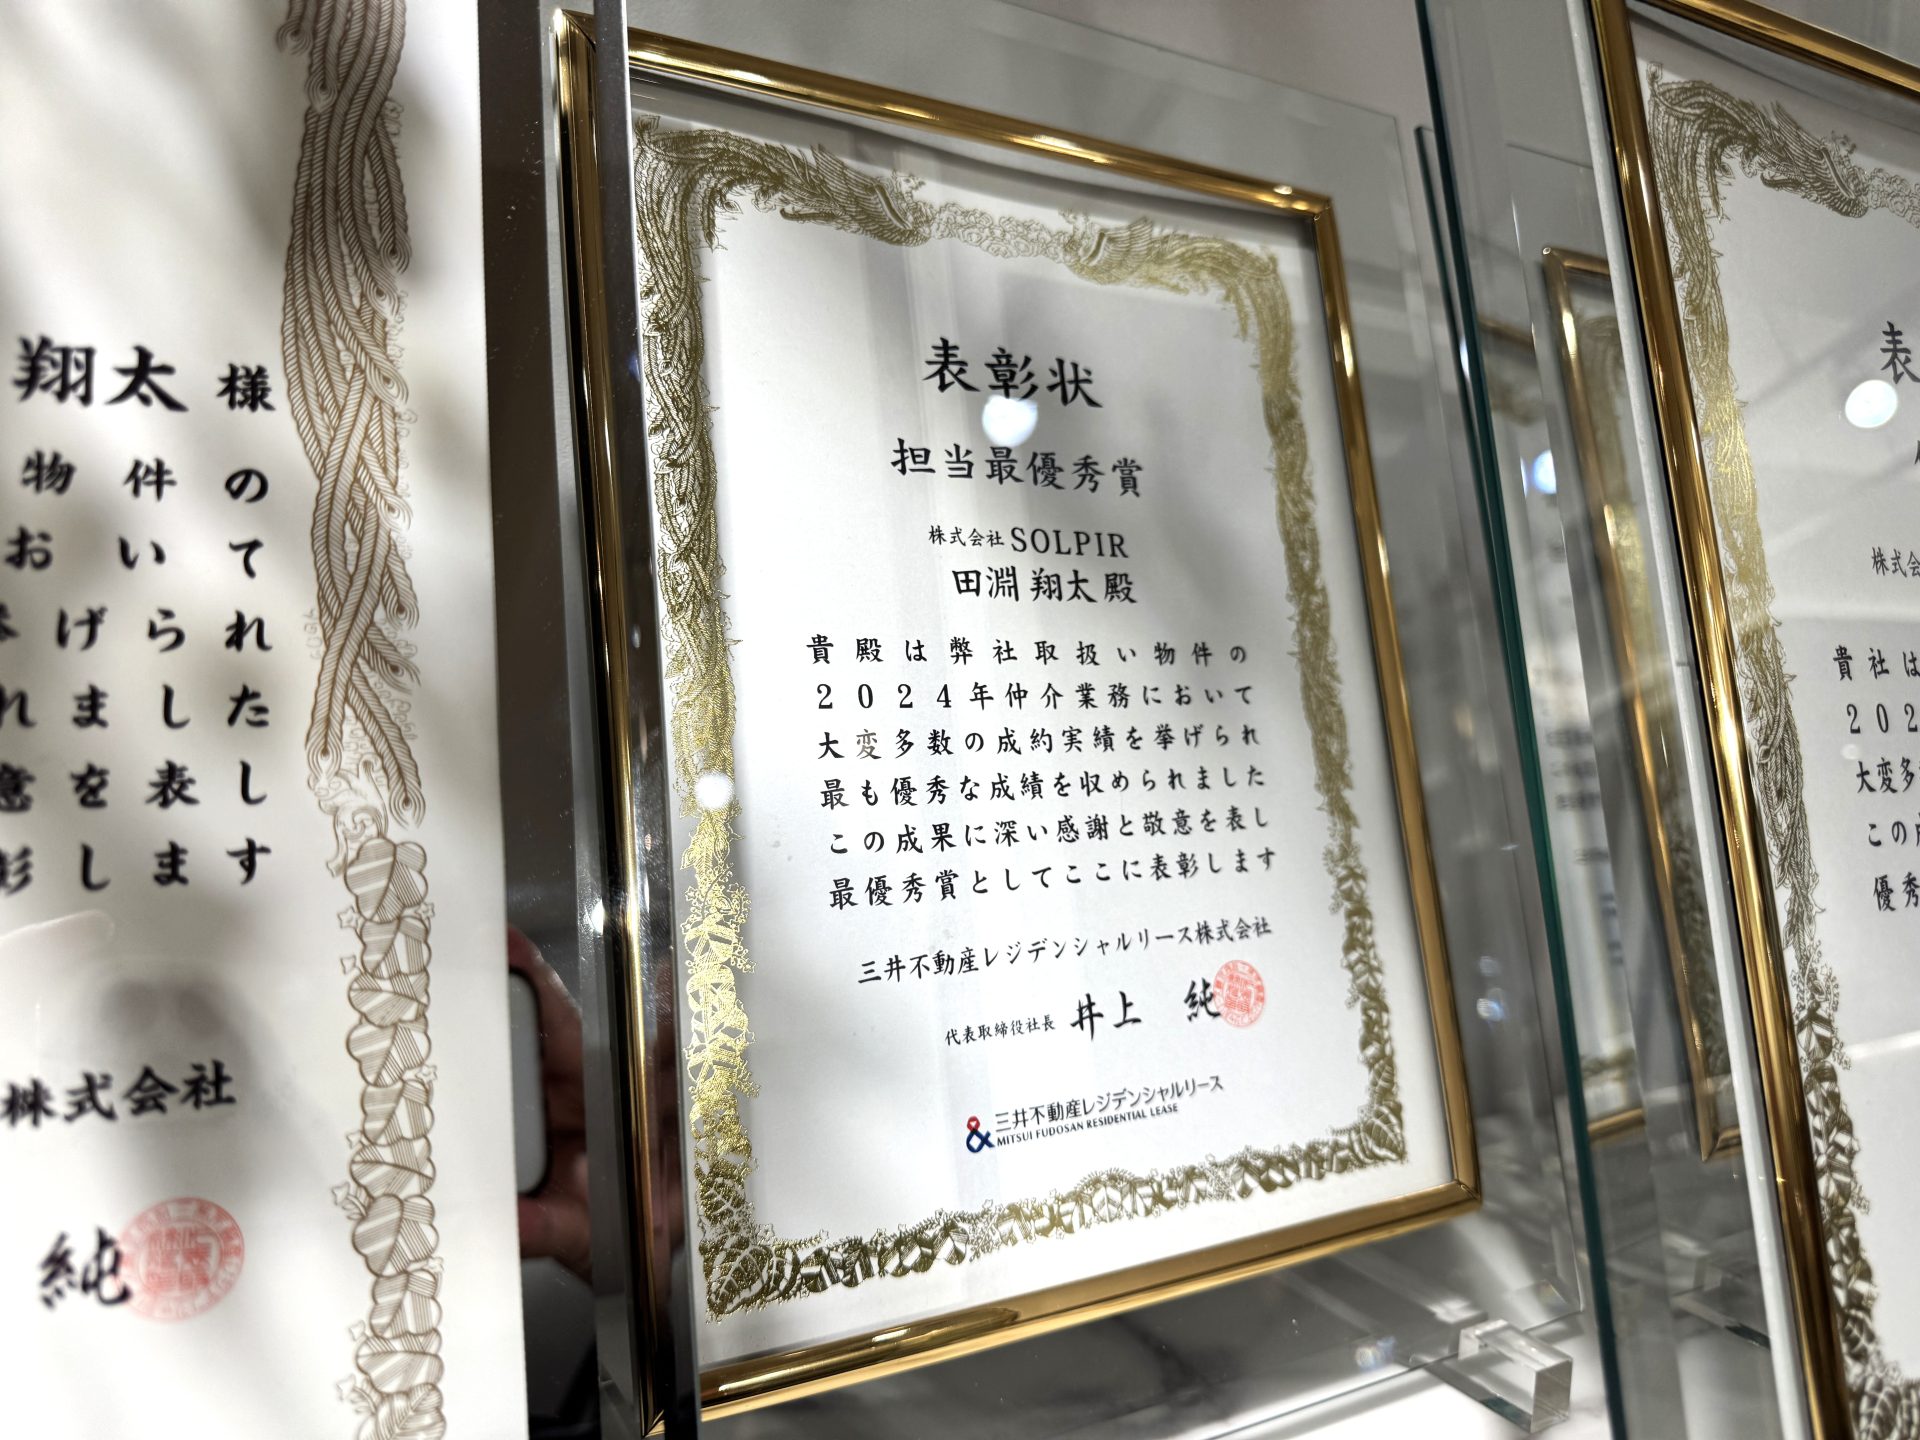 翔太 様
物件の
おいて
挙げられ
れました
意を表し
彰します
株式会社
純
表彰状
担当最優秀賞
株式会社 SOLPIR
田淵 翔太 殿
貴殿は弊社取扱い物件の
2024年仲介業務において
大変多数の成約実績を挙げられ
最も優秀な成績を収められました
この成果に深い感謝と敬意を表し
最優秀賞としてここに表彰します
三井不動産レジデンシャルリース株式会社
代表取締役社長 井上 純
三井不動産レジデンシャルリース
MITSUI FUDOSAN RESIDENTIAL LEASE
表
株式会
貴社は
202
大変多
この成
優秀